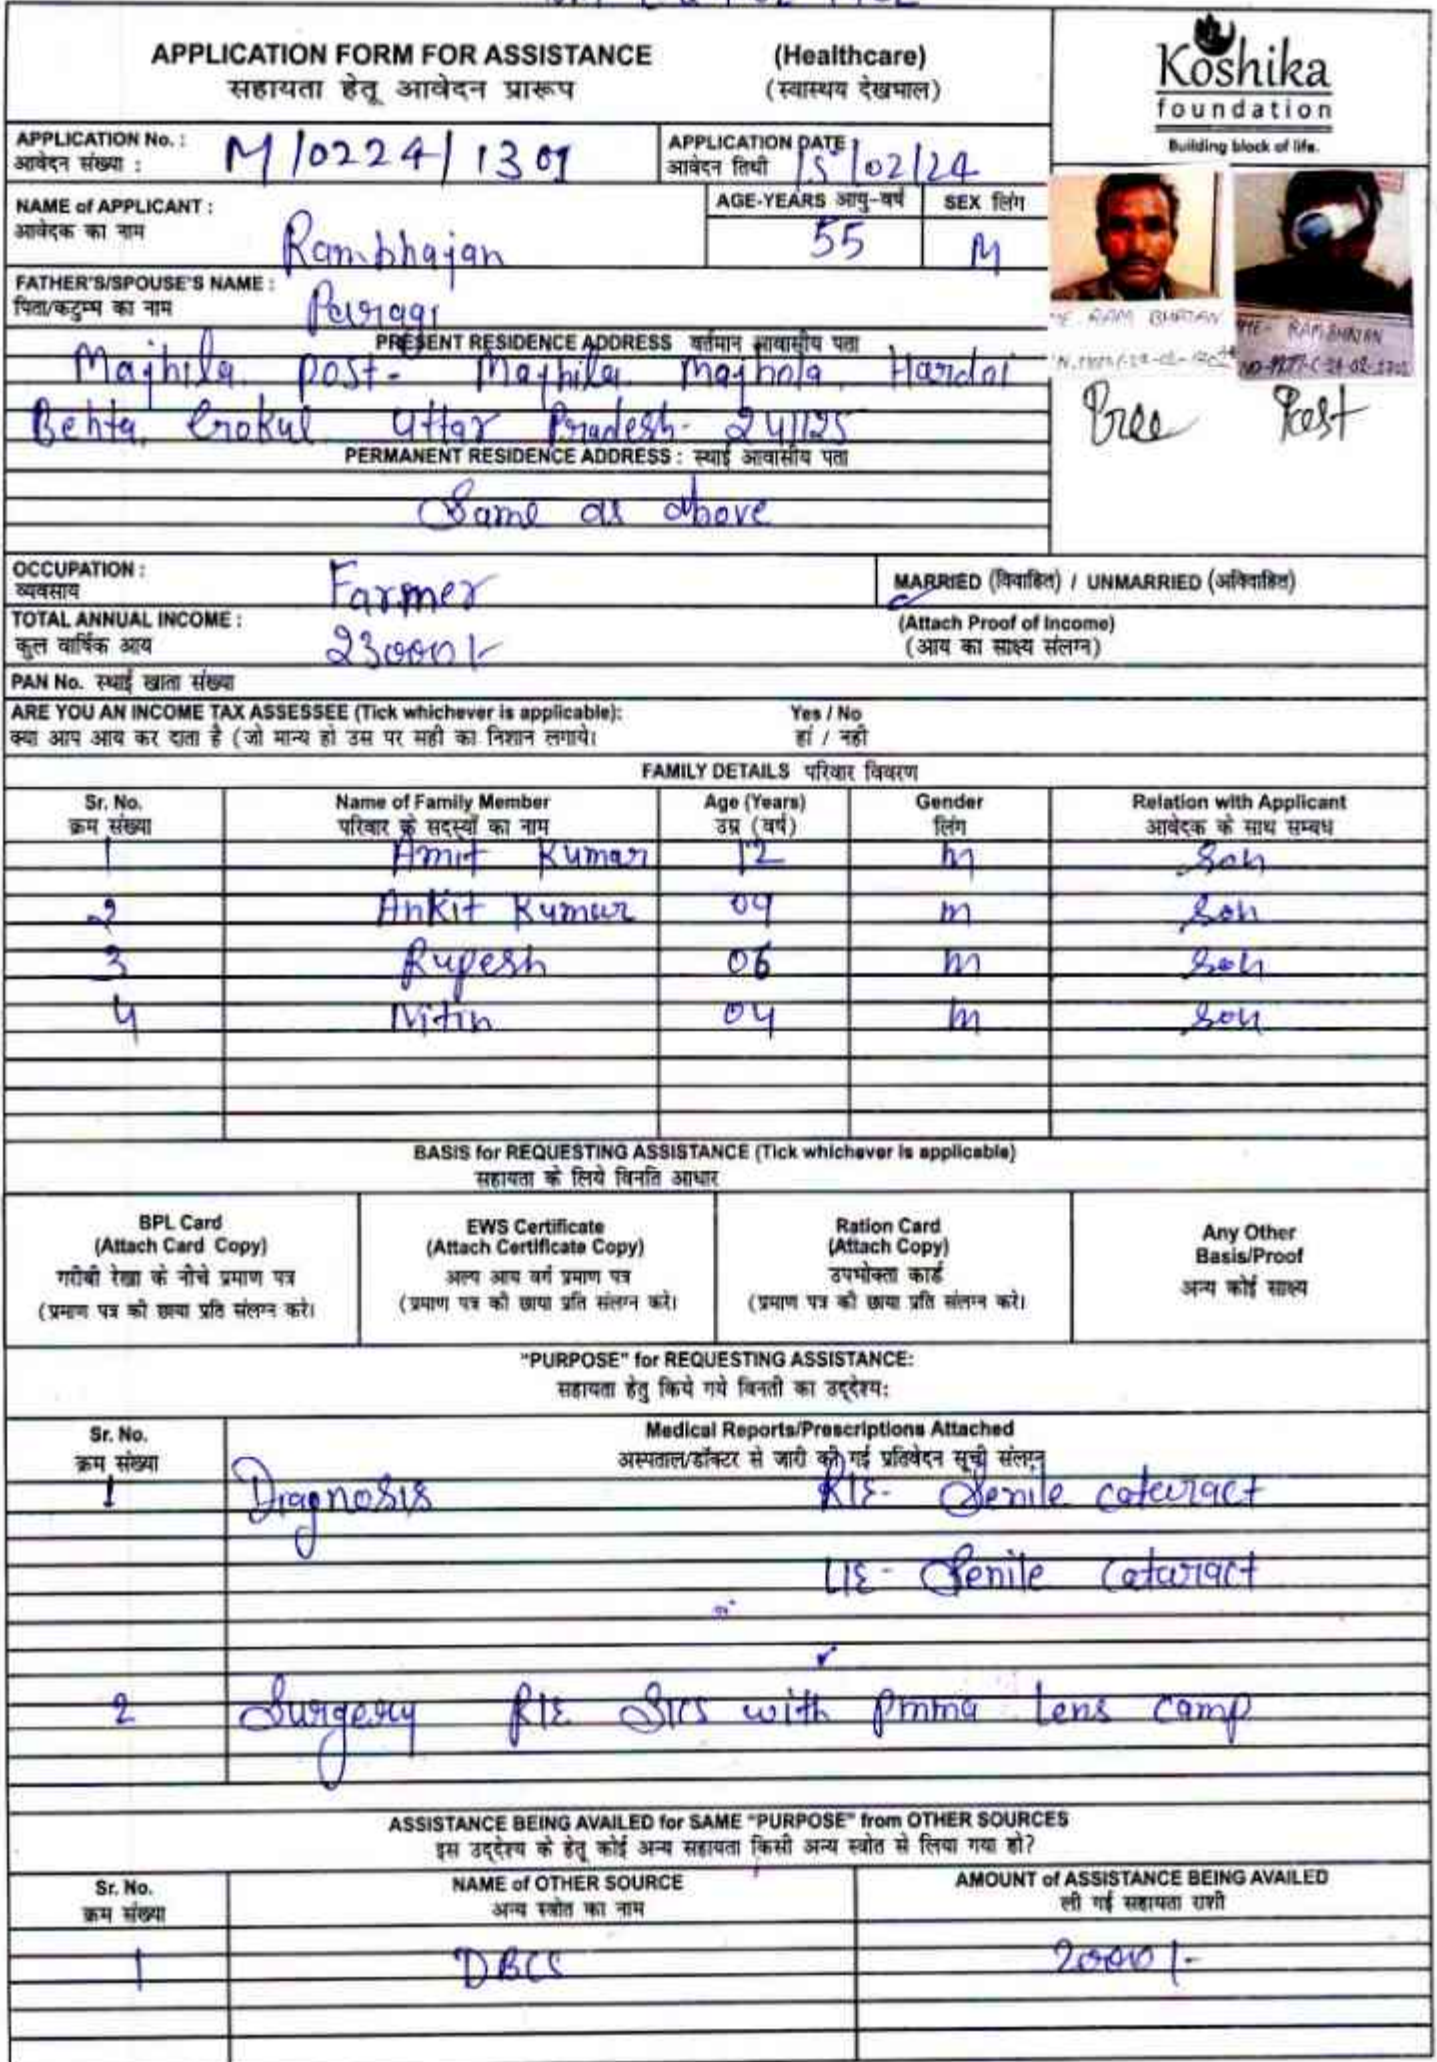 APPLICATION FORM FOR ASSISTANCE (Healthcare)
सहायता हेतू आवेदन प्रारूप (स्वास्थय देखभाल)
Koshika
foundation
Building block of life.
APPLICATION No. : M/0224/1301
आवेदन संख्या :
APPLICATION DATE : 15/02/24
आवेदन तिथी
NAME of APPLICANT : Rambhajan
आवेदक का नाम
AGE-YEARS आयु-वर्ष 55
SEX लिंग M
FATHER'S/SPOUSE'S NAME :
पिता/कटुम्भ का नाम
RAM BHAJAN
RAM BHAJAN
Pree Post
PRESENT RESIDENCE ADDRESS वर्तमान आवासीय पता
Majhila Post- Majhila Majhola Hardoi
Behta Gokul Uttar Pradesh- 241125
PERMANENT RESIDENCE ADDRESS : स्थाई आवासीय पता
Same as above
OCCUPATION : Farmer
व्यवसाय
MARRIED (विवाहित) / UNMARRIED (अविवाहित)
TOTAL ANNUAL INCOME : 23000/-
कुल वार्षिक आय
(Attach Proof of Income)
(आय का साक्ष्य संलग्न)
PAN No. स्थाई खाता संख्या
ARE YOU AN INCOME TAX ASSESSEE (Tick whichever is applicable): Yes / No
क्या आप आय कर दाता है (जो मान्य हो उस पर सही का निशान लगाये। हां / नही
FAMILY DETAILS परिवार विवरण
Sr. No. Name of Family Member Age (Years) Gender Relation with Applicant
क्रम संख्या परिवार के सदस्यों का नाम उम्र (वर्ष) लिंग आवेदक के साथ सम्बध
1 Amit Kumar 12 M Son
2 Ankit Kumar M Son
3 Rupesh 06 M Son
4 Nitin 04 M Son
BASIS for REQUESTING ASSISTANCE (Tick whichever is applicable)
सहायता के लिये विनति आधार
BPL Card
(Attach Card Copy)
गरीबी रेखा के नीचे प्रमाण पत्र
(प्रमाण पत्र की छाया प्रति संलग्न करे।
EWS Certificate
(Attach Certificate Copy)
अल्प आय वर्ग प्रमाण पत्र
(प्रमाण पत्र की छाया प्रति संलग्न करे।
Ration Card
(Attach Copy)
उपभोक्ता कार्ड
(प्रमाण पत्र की छाया प्रति संलग्न करे।
Any Other
Basis/Proof
अन्य कोई साक्ष्य
"PURPOSE" for REQUESTING ASSISTANCE:
सहायता हेतु किये गये विनती का उद्देश्य:
Sr. No. Medical Reports/Prescriptions Attached
क्रम संख्या अस्पताल/डॉक्टर से जारी की गई प्रतिवेदन सूची संलग्न
1 Diagnosis R/E- Senile cataract
L/E- Senile Cataract
2 Surgery R/E SICS with Pmma Lens camp
ASSISTANCE BEING AVAILED for SAME "PURPOSE" from OTHER SOURCES
इस उद्देश्य के हेतू कोई अन्य सहायता किसी अन्य स्त्रोत से लिया गया हो?
Sr. No. NAME of OTHER SOURCE AMOUNT of ASSISTANCE BEING AVAILED
क्रम संख्या अन्य स्त्रोत का नाम ली गई सहायता राशी
1 DBCS 2000/-